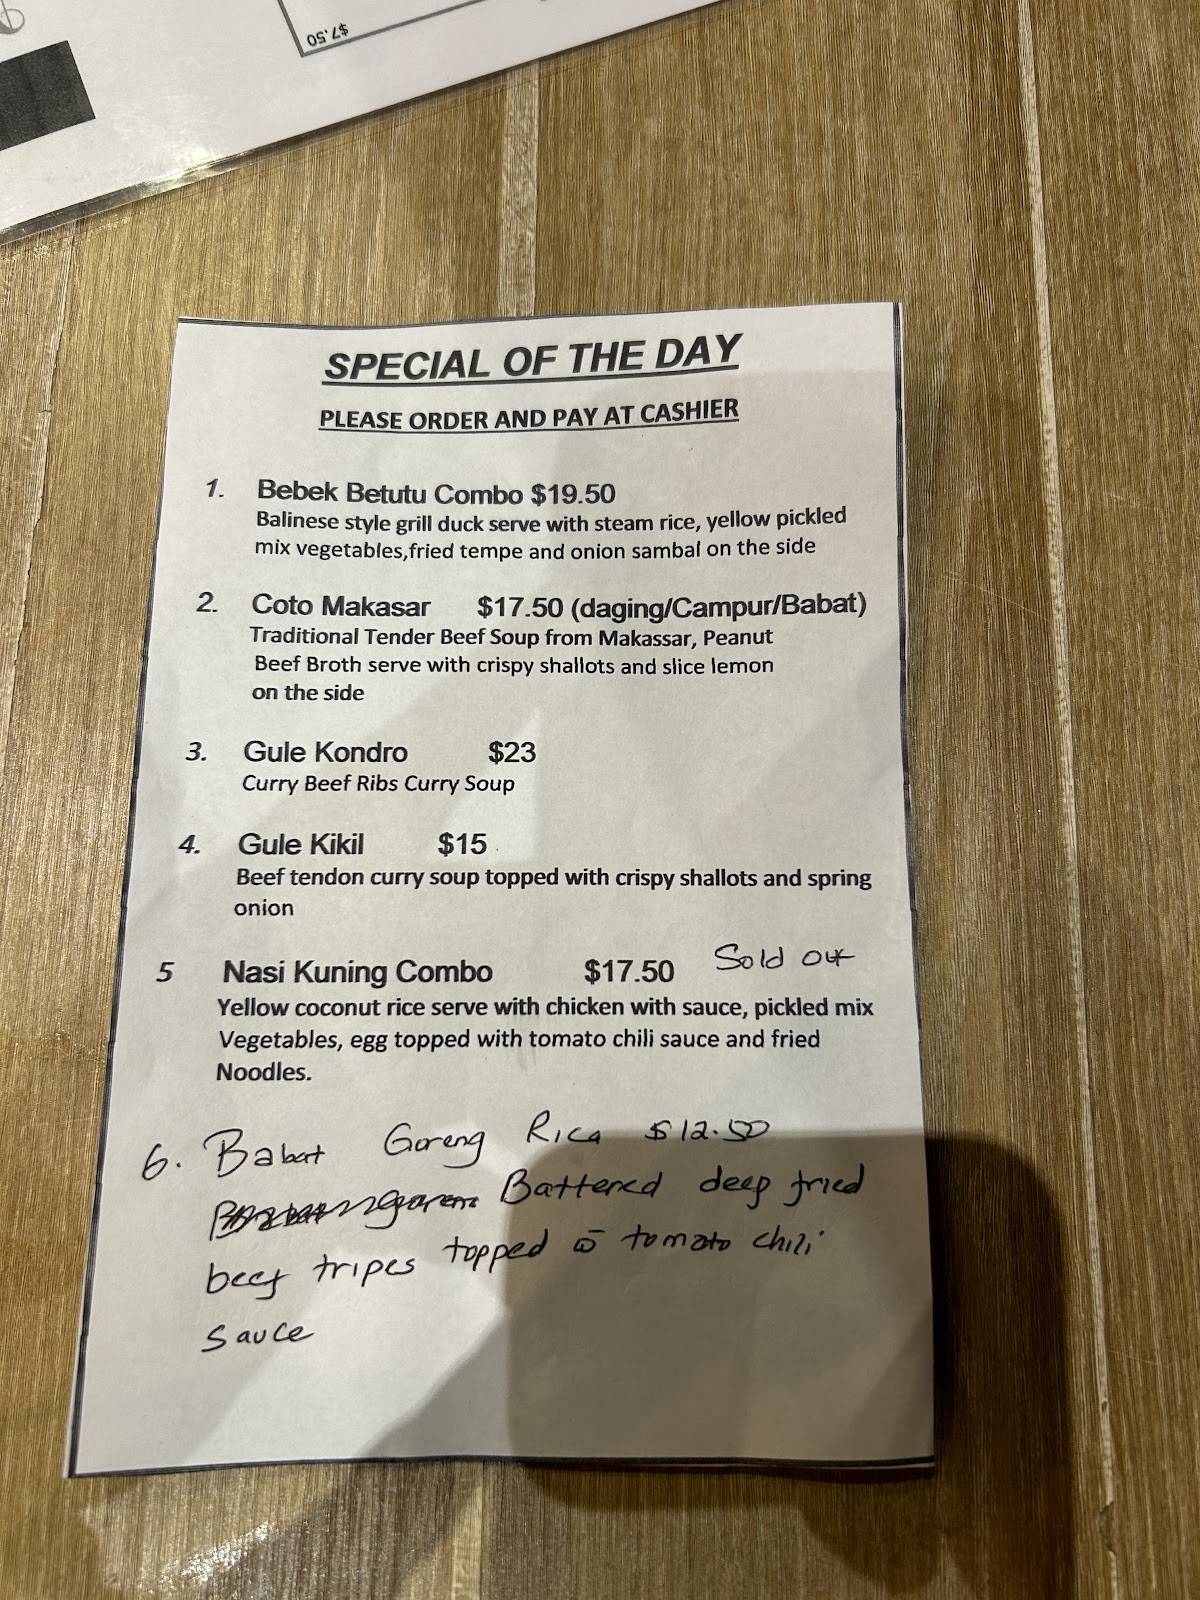 $7.50
SPECIAL OF THE DAY
PLEASE ORDER AND PAY AT CASHIER
1. Bebek Betutu Combo $19.50
Balinese style grill duck serve with steam rice, yellow pickled
mix vegetables,fried tempe and onion sambal on the side
2. Coto Makasar $17.50 (daging/Campur/Babat)
Traditional Tender Beef Soup from Makassar, Peanut
Beef Broth serve with crispy shallots and slice lemon
on the side
3. Gule Kondro $23
Curry Beef Ribs Curry Soup
4. Gule Kikil $15
Beef tendon curry soup topped with crispy shallots and spring
onion
5 Nasi Kuning Combo $17.50 Sold out
Yellow coconut rice serve with chicken with sauce, pickled mix
Vegetables, egg topped with tomato chili sauce and fried
Noodles.
6. Babat Goreng Rica $12.50
Battered deep fried
beef tripes topped w tomato chili
sauce